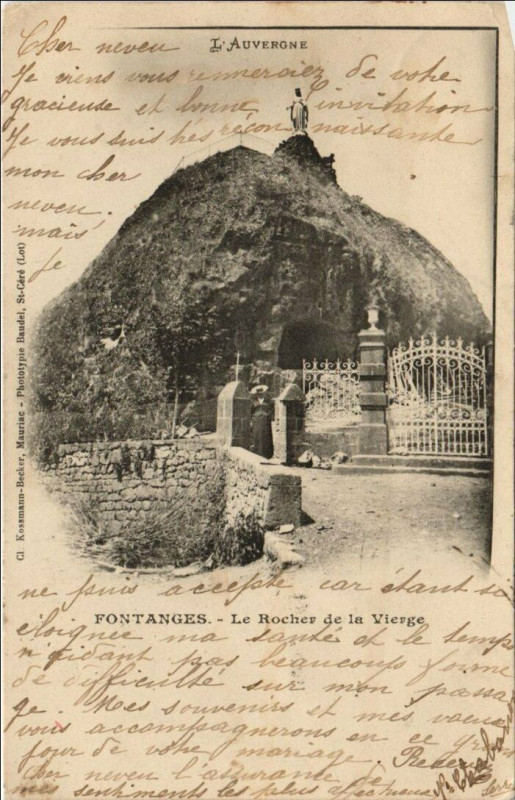 L'AUVERGNE
Cher neveu
Je viens vous remmerciez de votre
gracieuse et bonne invitation
Je vous suis très réconnaissante
mon cher
neveu.
mais
je
Cl Kossmann-Becker, Mauriac - Phototypie Baudel, St-Céré (Lot)
ne puis accepté car étant si
FONTANGES. - Le Rocher de la Vierge
éloignée ma santé et le temps
n'aidant pas beaucoups forme
de difficulté sur mon passa
ge. Mes souvenirs et mes vœux
vous accompagnerons en ce grand
jour de votre mariage.
cher neveu l'assurance de
mes sentiments les plus affectueux